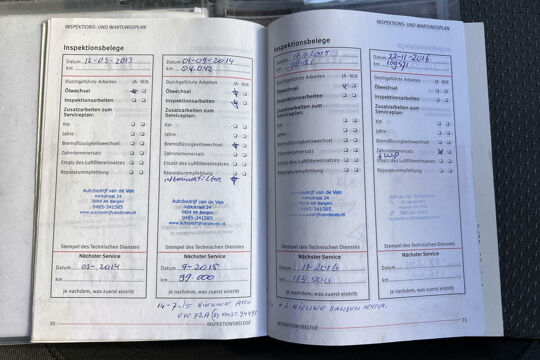 INSPEKTIONS- UND WARTUNGSPLAN
Inspektionsbelege
Datum 12-03-2013
km
Durchgeführte Arbeiten JA NEIN
Ölwechsel
Inspektionsarbeiten
Zusatzarbeiten zum
Serviceplan:
Km
Jahre
Bremsflüssigkeitswechsel
Zahnriemenersatz
Ersatz des Luftfiltereinsatzes
Reparaturempfehlung
Autobedrijf van de Ven
Kerkstraat 24
5854 AK Bergen
0485-341585
www.autobedrijfvandeven.nl
Stempel des Technischen Dienstes
Nächster Service
Datum 03-2014
km
je nachdem, was zuerst eintritt
Datum 01-09-2014
km
Durchgeführte Arbeiten JA NEIN
Ölwechsel
Inspektionsarbeiten
Zusatzarbeiten zum
Serviceplan:
Km
Jahre
Bremsflüssigkeitswechsel
Zahnriemenersatz
Ersatz des Luftfiltereinsatzes
Reparaturempfehlung
Autobedrijf van de Ven
Kerkstraat 24
5854 AK Bergen
0485-341585
www.autobedrijfvandeven.nl
Stempel des Technischen Dienstes
Nächster Service
Datum 9-2015
km 99.000
je nachdem, was zuerst eintritt
14-7-15 NIEUWE ACCU
20
INSPEKTIONSBELEGE
INSPEKTIONS- UND WARTUNGSPLAN
Inspektionsbelege
Datum
km
Durchgeführte Arbeiten JA NEIN
Ölwechsel
Inspektionsarbeiten
Zusatzarbeiten zum
Serviceplan:
Km
Jahre
Bremsflüssigkeitswechsel
Zahnriemenersatz
Ersatz des Luftfiltereinsatzes
Reparaturempfehlung
Autobedrijf van de Ven
Kerkstraat 24
5854 AK Bergen
0485-341585
www.autobedrijfvandeven.nl
Stempel des Technischen Dienstes
Nächster Service
Datum
km
je nachdem, was zuerst eintritt
Datum 22-11-2016
km 109471
Durchgeführte Arbeiten JA NEIN
Ölwechsel
Inspektionsarbeiten
Zusatzarbeiten zum
Serviceplan:
Km
Jahre
Bremsflüssigkeitswechsel
Zahnriemenersatz
& WP
Ersatz des Luftfiltereinsatzes
Reparaturempfehlung
Stempel des Technischen Dienstes
Nächster Service
Datum
km
je nachdem, was zuerst eintritt
+ 2 NIEUWE BANDEN ACHTER.
INSPEKTIONSBELEGE
21